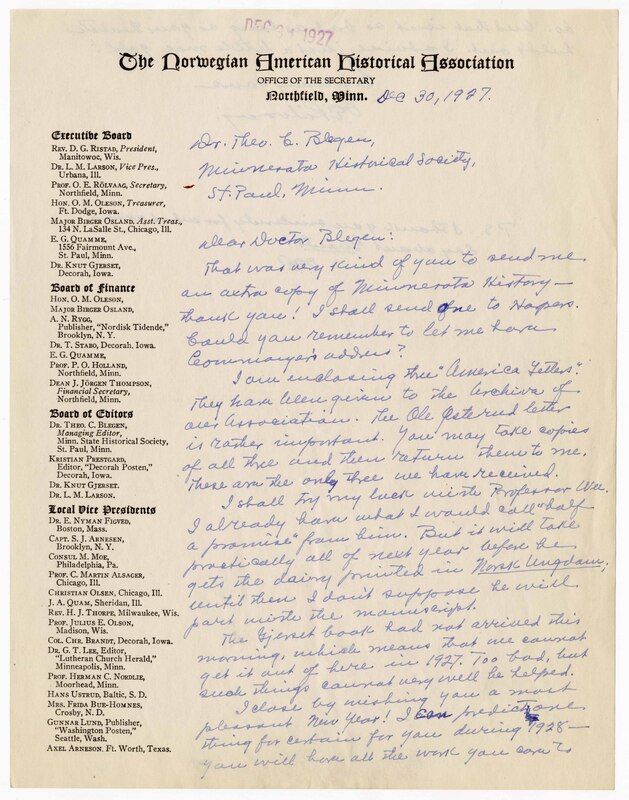 DEC 31 1927
The Norwegian American Historical Association
OFFICE OF THE SECRETARY
Northfield, Minn. Dec 30, 1927.
Executive Board
REV. D. G. RISTAD, President,
Manitowoc, Wis.
DR. L. M. LARSON, Vice Pres.,
Urbana, Ill.
PROF. O. E. RÖLVAAG, Secretary,
Northfield, Minn.
HON. O. M. OLESON, Treasurer,
Ft. Dodge, Iowa.
MAJOR BIRGER OSLAND, Asst. Treas.,
134 N. LaSalle St., Chicago, Ill.
E. G. QUAMME,
1556 Fairmount Ave.,
St. Paul, Minn.
DR. KNUT GJERSET,
Decorah, Iowa.
Board of Finance
HON. O. M. OLESON,
MAJOR BIRGER OSLAND,
A. N. RYGG,
Publisher, "Nordisk Tidende,"
Brooklyn, N. Y.
DR. T. STABO, Decorah, Iowa.
E. G. QUAMME,
PROF. P. O. HOLLAND,
Northfield, Minn.
DEAN J. JÖRGEN THOMPSON,
Financial Secretary,
Northfield, Minn.
Board of Editors
DR. THEO. C. BLEGEN,
Managing Editor,
Minn. State Historical Society,
St. Paul, Minn.
KRISTIAN PRESTGARD,
Editor, "Decorah Posten,"
Decorah, Iowa.
DR. KNUT GJERSET.
DR. L. M. LARSON.
Local Vice Presidents
DR. E. NYMAN FIGVED,
Boston, Mass.
CAPT. S. J. ARNESEN,
Brooklyn, N. Y.
CONSUL M. MOE,
Philadelphia, Pa.
PROF. C. MARTIN ALSAGER,
Chicago, Ill.
CHRISTIAN OLSEN, Chicago, Ill.
J. A. QUAM, Sheridan, Ill.
REV. H. J. THORPE, Milwaukee, Wis.
PROF. JULIUS E. OLSON,
Madison, Wis.
COL. CHR. BRANDT, Decorah, Iowa.
DR. G. T. LEE, Editor,
"Lutheran Church Herald,"
Minneapolis, Minn.
PROF. HERMAN C. NORDLIE,
Moorhead, Minn.
HANS USTRUD, Baltic, S. D.
MRS. FRIDA BUE-HOMNES,
Crosby, N. D.
GUNNAR LUND, Publisher,
"Washington Posten,"
Seattle, Wash.
AXEL ARNESON. Ft. Worth, Texas.
Dr. Theo. C. Blegen,
Minnesota Historical Society,
St. Paul, Minn.
Dear Doctor Blegen:
That was very kind of you to send me
an extra copy of Minnesota History —
thank you! I shall send one to Harpers.
Could you remember to let me have
Commager's address?
I am enclosing three "America Letters".
They have been given to the Archive of
our Association. The Ole letter
is rather important. You may take copies
of all three and then return them to me.
These are the only three we have received.
I shall try my luck with Professor Wee.
I already have what I would call "half
a promise" from him. But it will take
practically all of next year before he
gets the diary printed in Norsk Ungdom;
until then I don't suppose he will
part with the manuscript.
The Gjerset book had not arrived this
morning, which means that we cannot
get it out of here in 1927. Too bad, but
such things cannot very well be helped.
I close by wishing you a most
pleasant New Year! I can predict one
thing for certain for you during 1928 —
you will have all the work you care to